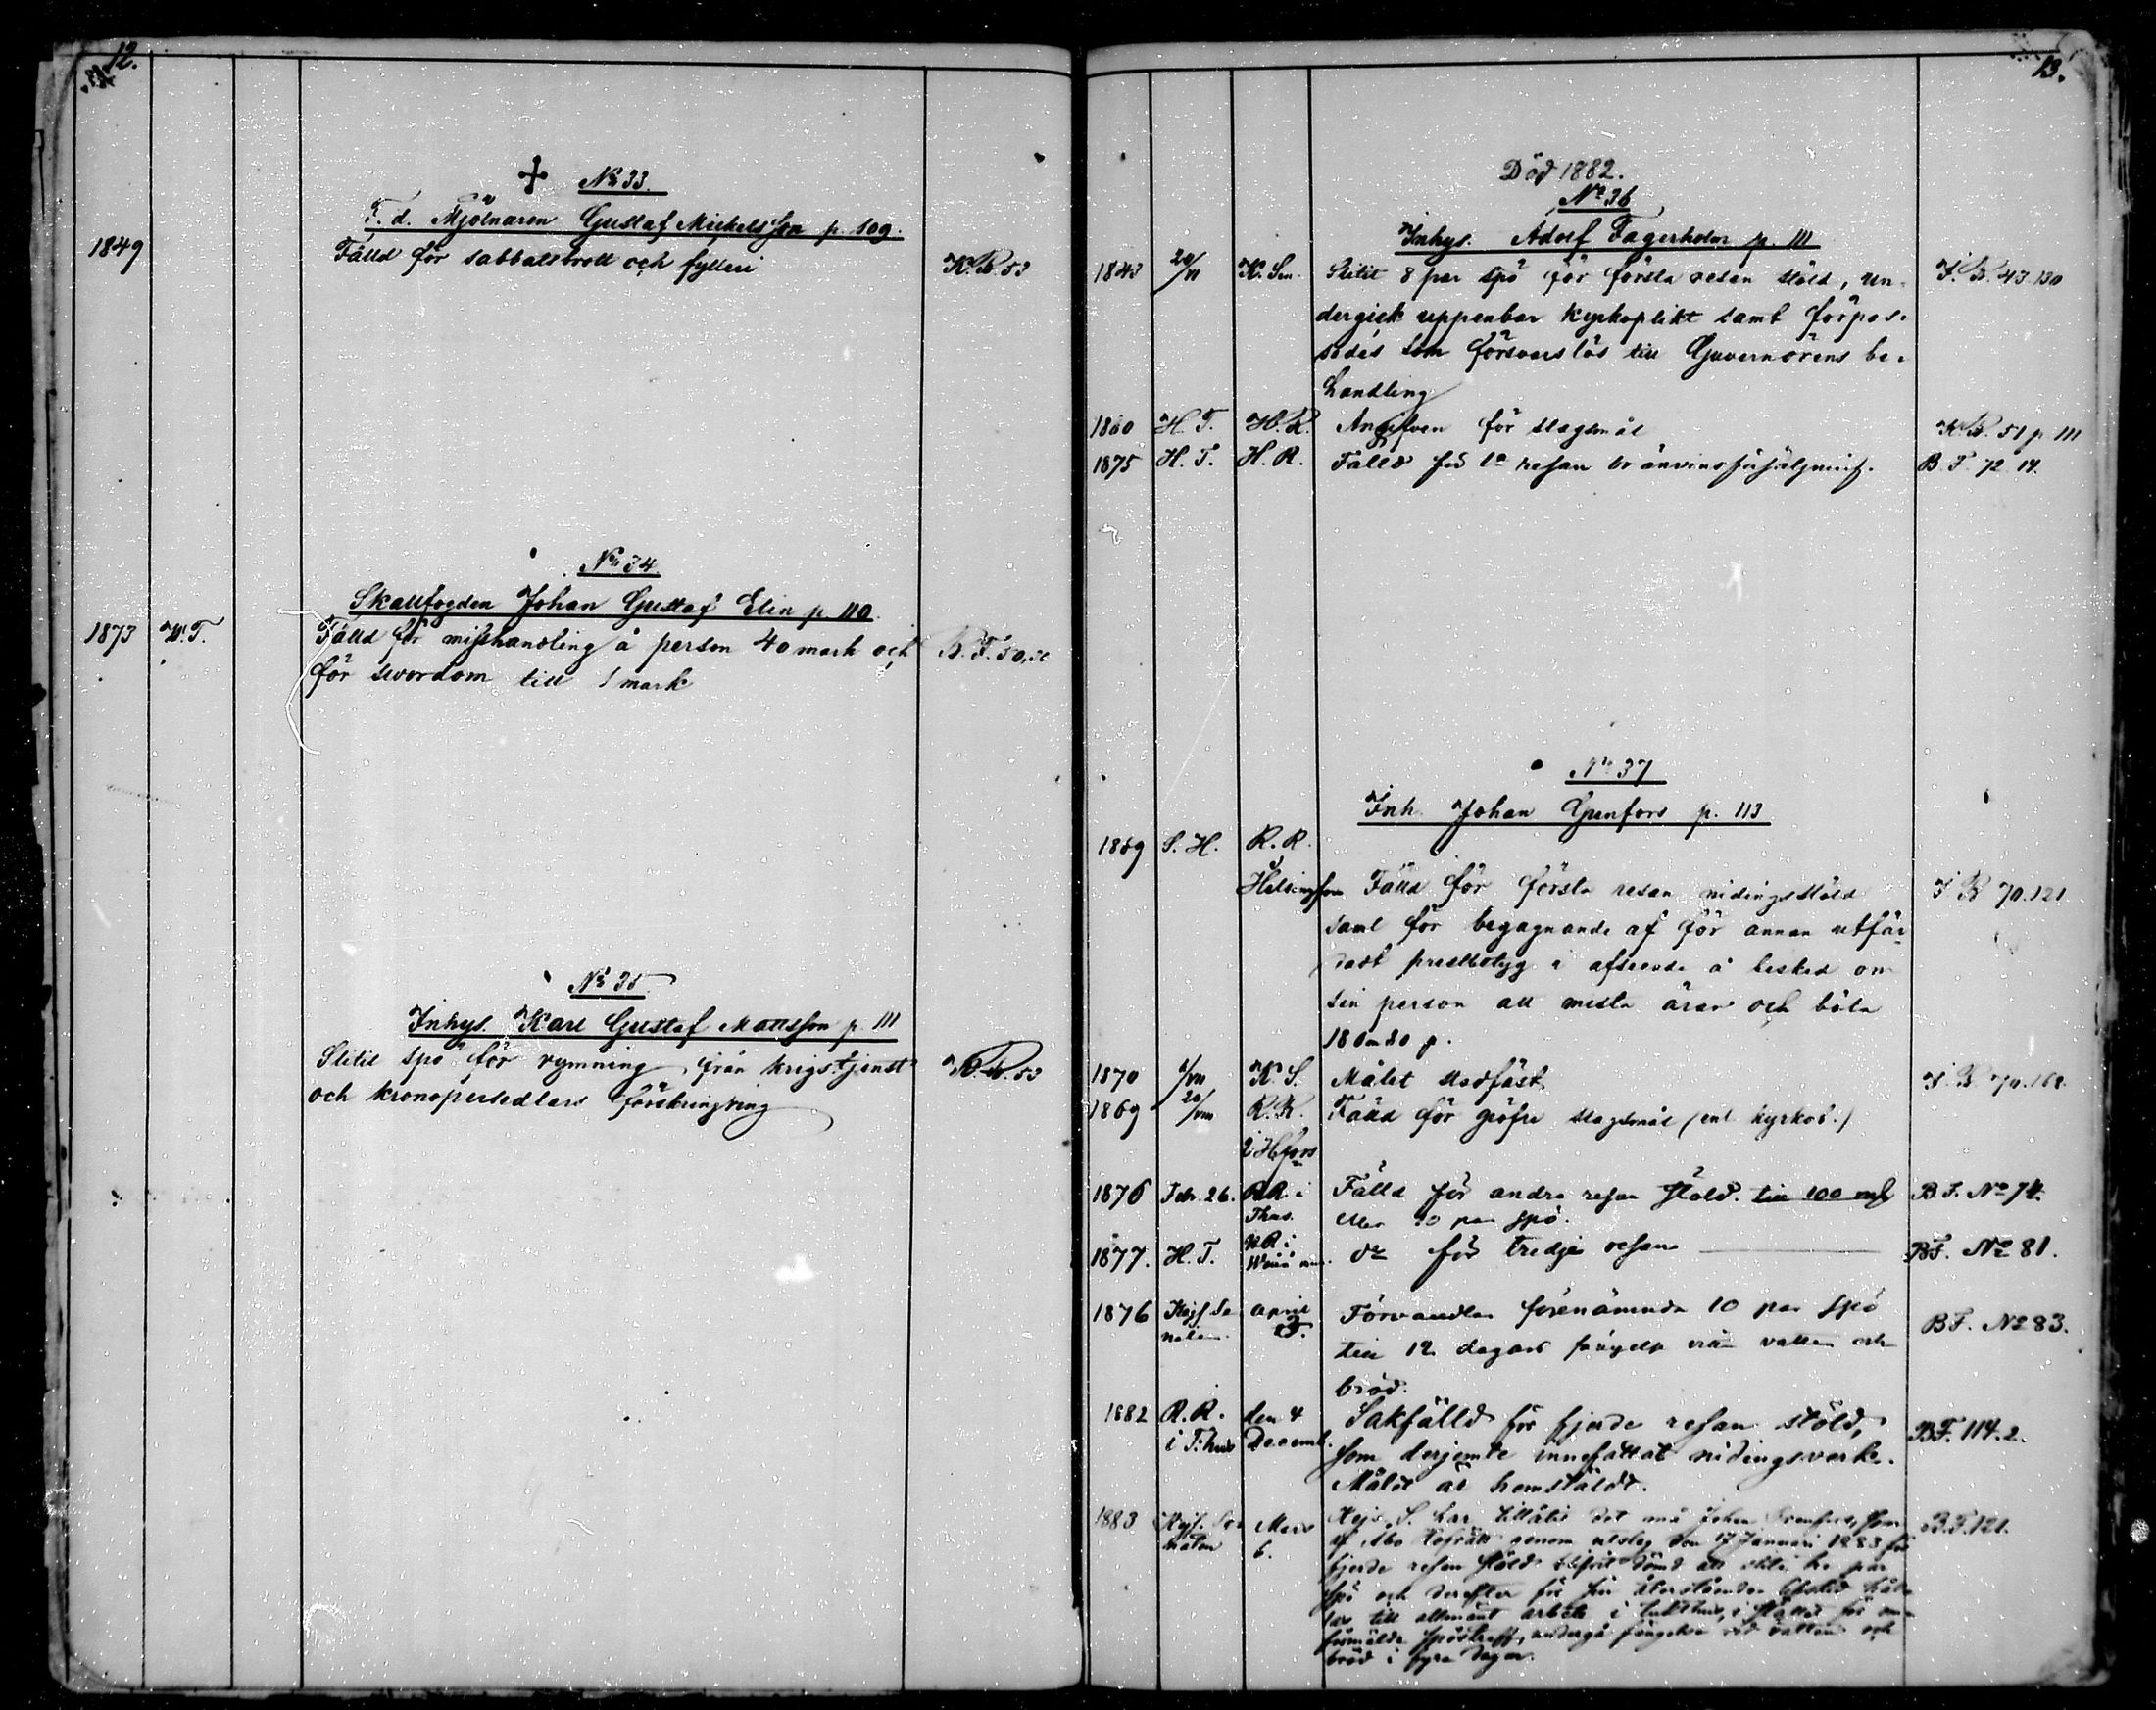 12.
+ No 33.
F. d. Mjölnaren Gustaf Mickelsson p. 109.
1849 Fälld för sabbatsbrott och fylleri K.B. 53
No 34
Skallfogden Johan Gustaf Elin p. 110.
1873 W.T. Fälld för misshandling å person 40 mark och B.F. 50,
för svordom till 1 mark
No 35
Inhys. Karl Gustaf Mattsson p. 111
Slitit spö för rymning från krigstjenst K.B. 53
och kronopersedlars förskingring
13.
Död 1882.
No 36
Inhys. Adolf Fagerholm p. 111
1843 20/VI K. Sn. Slitit 8 par spö för första resan stöld, un- I.B. 43.130
dergick uppenbar kyrkoplikt samt förpas-
sades som försvarslös till Guvernörens be-
handling
1860 H.T. H.R. Angifven för slagsmål K.B. 51 p 111
1875 H.T. H.R. Fälld för 1a resan bränvinsförsäljning. B.F. 72.14.
No 37
Inh. Johan Grenfors p. 113
1869 S.H. R.R.
Helsingfors Fälld för första resan nidingsstöld I B 70.121
samt för begagnande af för annan utfär-
dadt prestbetyg i afseende å besked om
sin person att mista äran och böta
180 m 80 p.
1870 K.S. Målet stadfäst I.B. 70.168.
1869 20/VIII R.R. Fälld för gröfre slagsmål (enl kyrkob.)
i H:fors
1876 Febr. 26. R.R. i Fälld för andra resan stöld. till 100 mk B.F. No 74.
Thus. eller 10 par spö.
1877. H.T. R.R. i do för tredje resan B.F. No 81.
1876 Kejs. Se- april Förvandlas förenämnda 10 par spö B.F. No 83.
naten 3. till 12 dagars fängelse vid vatten och
bröd.
1882 R.R. den 4 Sakfälld för fjerde resan stöld, B.F. 114.2.
i T:hus Decemb. som derjemte innefattat nidingsverk.
Målet är hemstäldt.
1883 Kejs. Se- Mars Kejs. S. har tillåtit det må Johan Grenfors, som B.F. 121.
naten 6. af Åbo Hofrätt genom utslag den 17 Januari 1883 för
fjerde resan stöld blifvit dömd att slita par
spö och derefter för sin återstående lifstid hål-
las till allmänt arbete i tukthus, i stället för om-
förmälda spöstraff, undergå fängelse vid vatten och
bröd i fyra dagar.